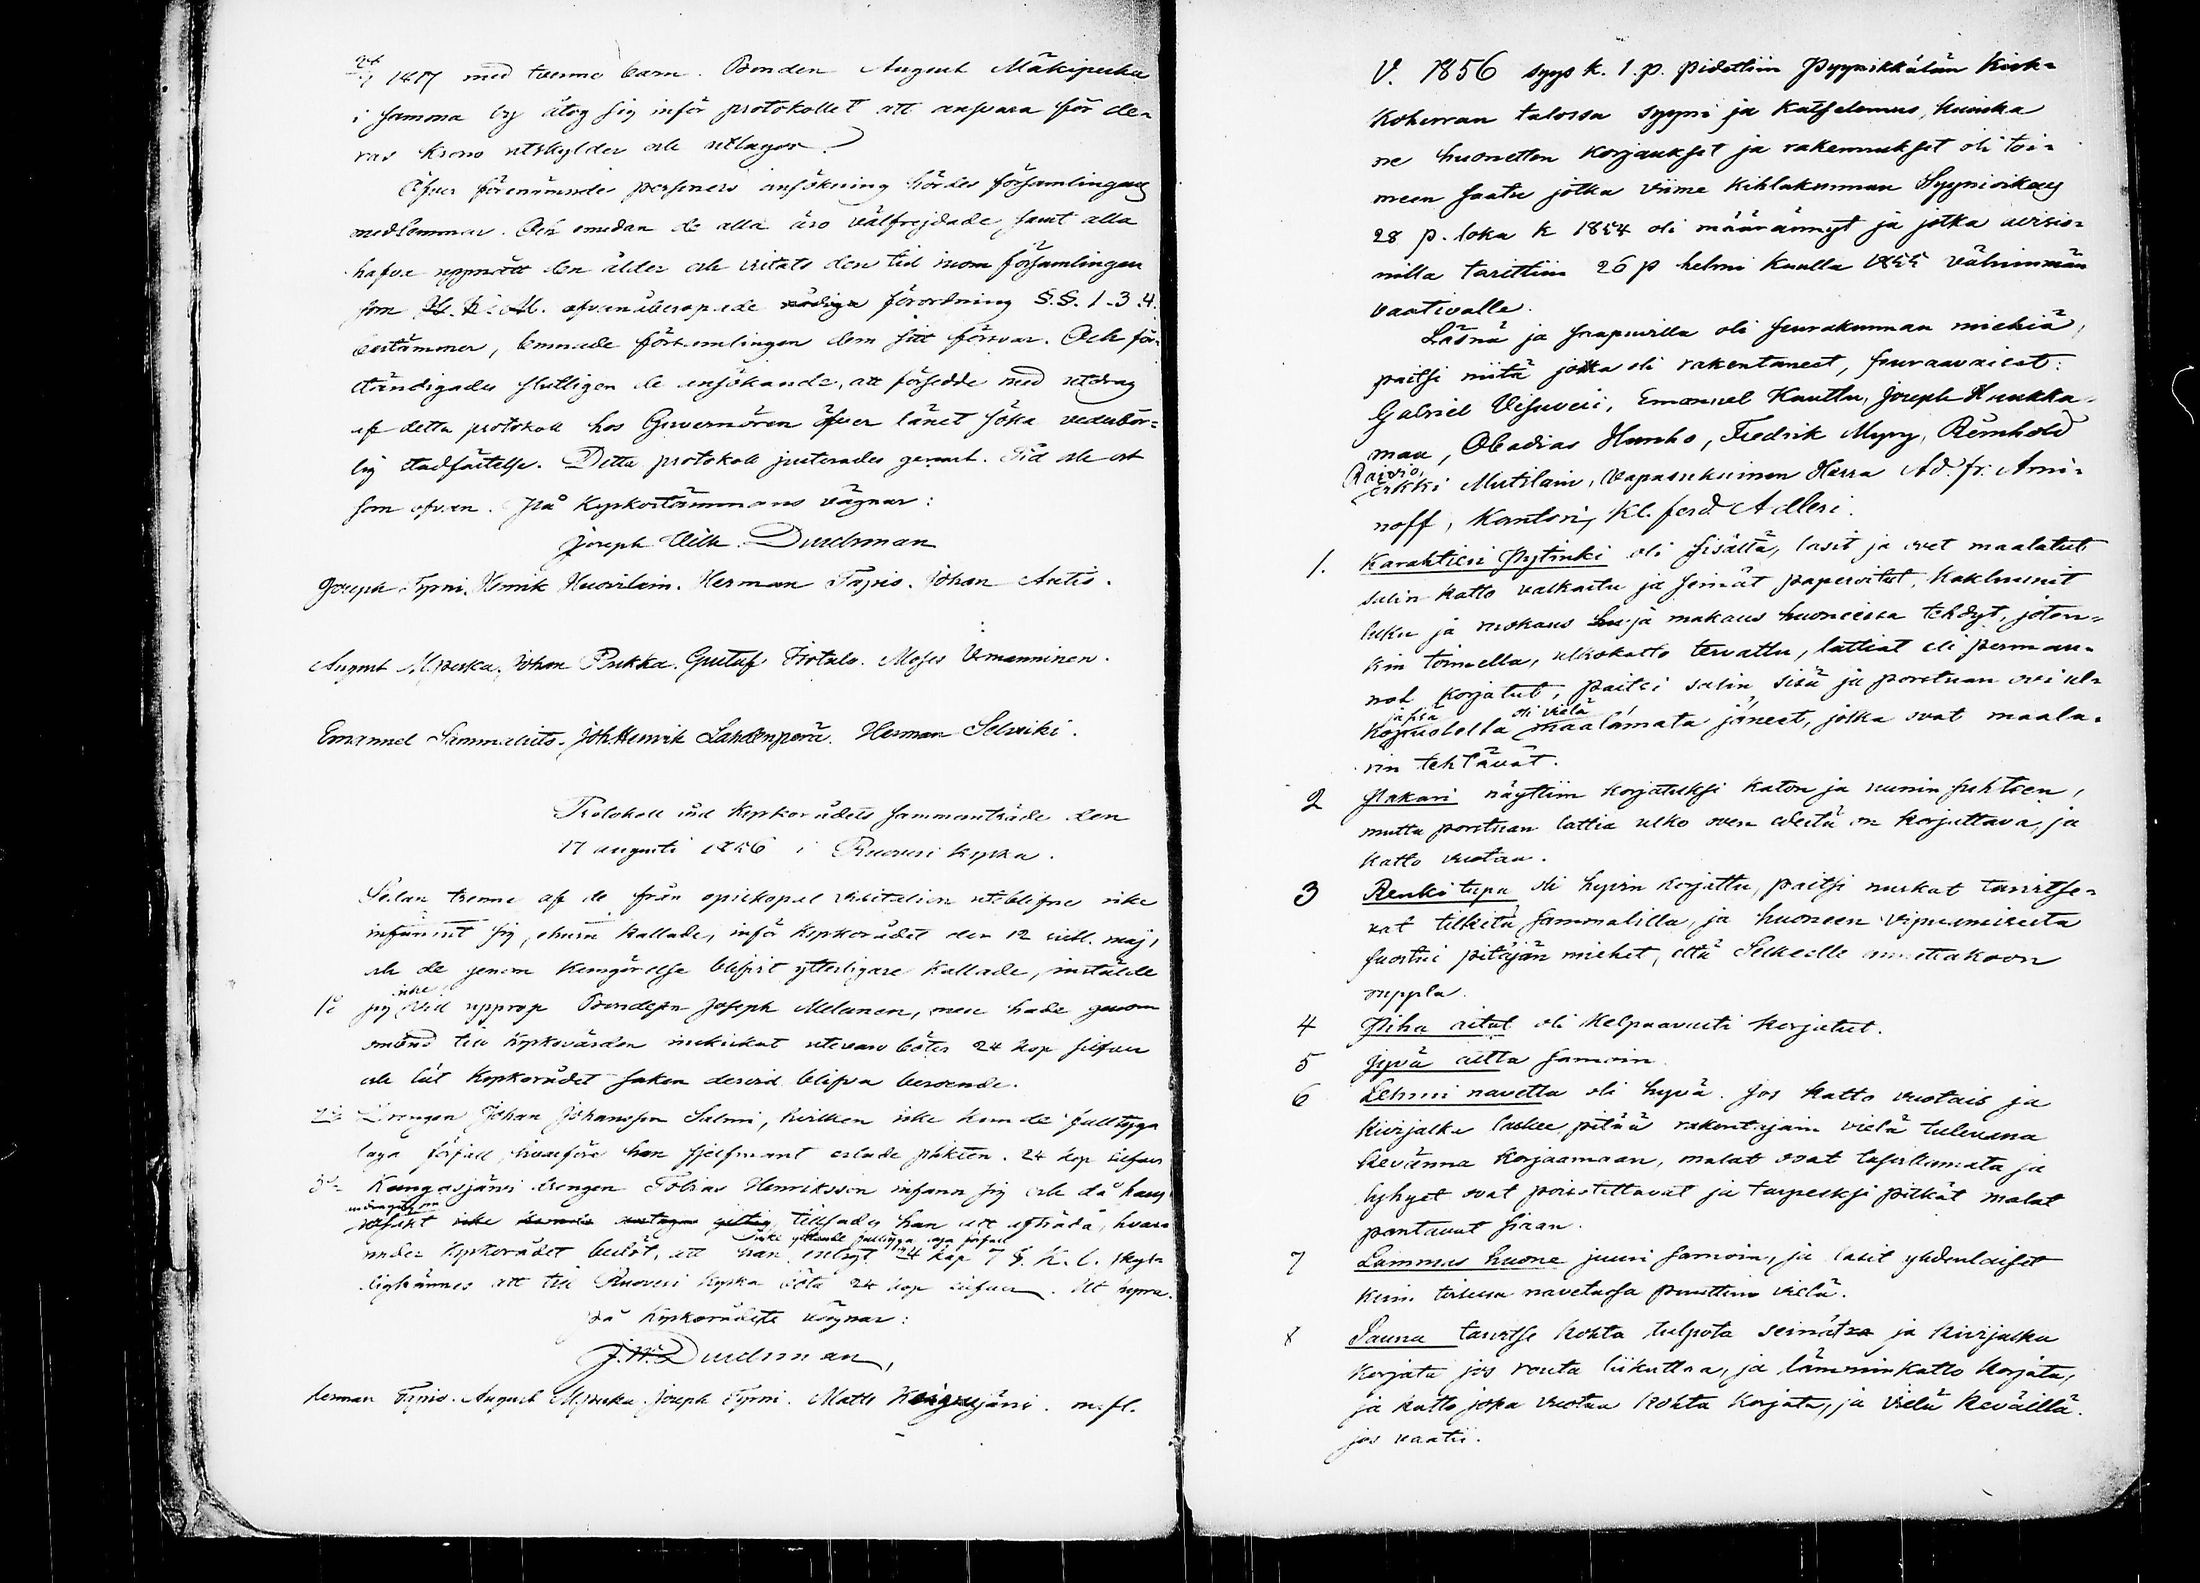 1817 med tvenne barn. Bonden August Mäkipeska
i samma by åtog sig inför protokollet att ansvara för de=
ras Krono utskylder och utlagor.
Öfver förenämnde personers ansökning hördes församlingens
medlemmar. Och emedan de alla äro välfrejdade, samt alla
hafva uppnått den ålder och vistats den tid inom församlingen
som H. K. M. ofvanåberopade nådiga förordning §.§. 1.3.4.
bestämmer, lemnade församlingen dem sitt försvar. Och för=
ständigades slutligen de ansökande, att försedde med utdrag
af detta protokoll hos Guvernören öfver länet söka vederbör=
lig stadfästelse. Detta protokoll justerades genast. Tid och ort
som ofvan. På Kyrkostämmans vägnar:
Joseph Wilh. Durchman
Joseph Tyrni. Henrik Huovilain. Herman Tapio. Johan Antis.
August M.peska. Johan Pukka. Gustaf Tiotalo. Moses Unnanninen.
Emanuel Sammalisto. Joh Henrik Lahdenperä. Herman Selviki.
Protokoll vid Kyrkorådets sammanträde den
17 augusti 1856 i Ruovesi Kyrka.
Sedan trenne af de från episkopal visitation uteblifne icke
infunnit sig, ehuru kallade, inför Kyrkorådet den 12 sistl. maji
och de genom Kungörelse blifvit ytterligare kallade, instälde
icke
1o sig vid upprop Bonden Joseph Melanen, men hade genom
ombud till Kyrkovärden inskickat utevaro böter 24 kop silfver
och lät Kyrkorådet saken dervid blifva beroende.
2o Drengen Johan Johansson Salmi, hvilken icke kunde fulltyga
laga förfall, hvarföre han sjelfmant erlade plikten. 24 kop silfver
3o Kangasjärvi drengen Tobias Henriksson infann sig och då hans
icke tillsades han att afträda, hvar=
icke gittande fulltyga laga förfall
under Kyrkorådet beslöt, att han enligt 24 kap 7 §. K. L. skyl=
digkännes att till Ruovesi Kyrka böta 24 kop silfver. Ut supra.
På Kyrkorådets vägnar:
J.W. Durchman,
Herman Tapio. August M.peska. Joseph Tyrni. Matts Kangasjärvi. m.fl.
V. 1856 syys k. 1. p. pidettiin Pyynikkälän Kirk=
koherran talossa syyni ja Katselemus, kuinka
ne huonetten korjaukset ja rakennukset oli toi=
meen saatu jotka viime kihlakunnan Syynioikeus
28 p. loka k 1854 oli määrännyt ja jotka
nilla tarittiin 26 p helmi kuulla 1855 vähimmän
vaativalle.
Läsnä ja saapuvilla oli seurakunnan miehiä,
paitsi niitä jotka oli rakentaneet, seuraavaiset:
Gabriel Visuvesi, Emanuel Kauttu, Joseph Haukka=
maa, Obadias Hanho, Fredrik Myry, Reinhold
Raivio,
Erkki Mutilain, Vapasukuinen Herra Ad. fr. Ami=
noff, Kanttori Kl. ferd. Adleri.
1. Karahtieri Pytinki oli sisältä, lasit ja ovet maalatut
salin katto valkaistu ja seinät paperoitut, Kakluunit
luku ja ruokaus ja makaus huoneissa tehdyt, joten=
kin toimella, ulkokatto tervattu, lattiat eli perman=
not korjatut, paitsi salin sisä ja porstuan ovi ul=
ja sisä oli vielä
kopuolella maalamata jäneet, jotka ovat maala=
rin tehtävät.
2 Pakari näyttiin korjatuksi katon ja uunin suhteen,
mutta porstuan lattia ulko oven edestä on korjattava, ja
katto vuotaa.
3 Renki tupa oli hyvin korjattu, paitsi nurkat tarvitse=
vat tilkitä sammalilla, ja huoneen vipuamisesta
suostui pitäjän miehet, että Selkeelle annettakoon
ruppla.
4 Piha aitat oli kelpaavasti korjatut.
5 Jyvä aitta samoin.
6 Lehmi navetta oli hyvä. Jos katto vuotais ja
Kivijalka laskee, pitää rakentajain vielä tulevana
kevännä korjaamaan, malat ovat ja
lyhyet ovat poisotettavat ja tarpeeksi pitkät malat
pantavat siaan.
7 Lammas huone juuri samoin, ja lasit yhdenlaiset
kuin toisessa navetassa puuttuu vielä.
8 Sauna tarvitse kohta tulpota seinät ja kivijalka
korjata jos routa liikuttaa, ja lämminkatto korjata,
ja katto joka vuotaa kohta korjata, ja vielä keväillä
jos vaatii.